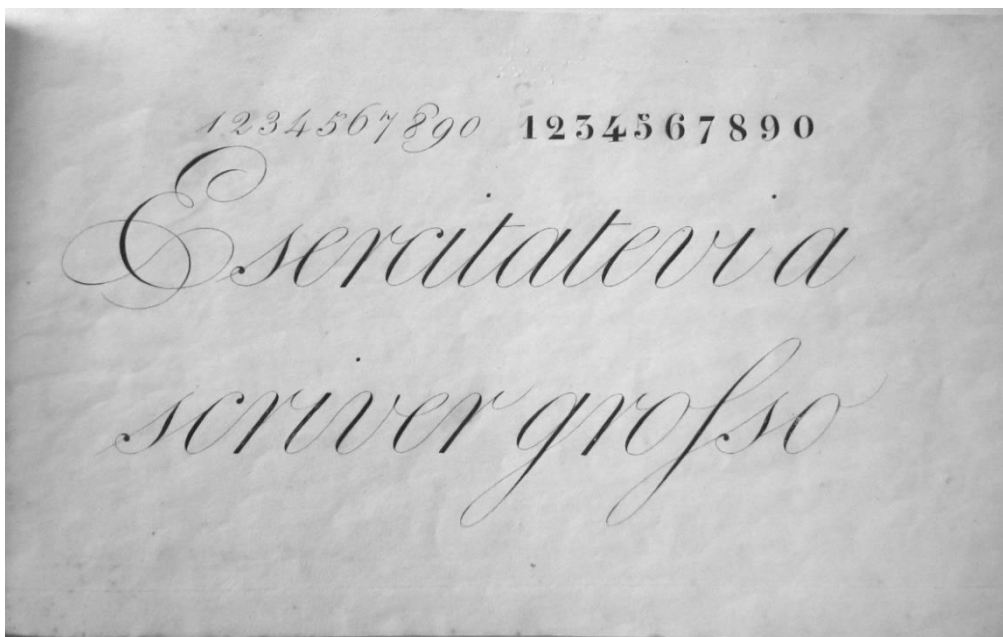 1234567890 1234567890
Esercitatevi a
scriver groſso